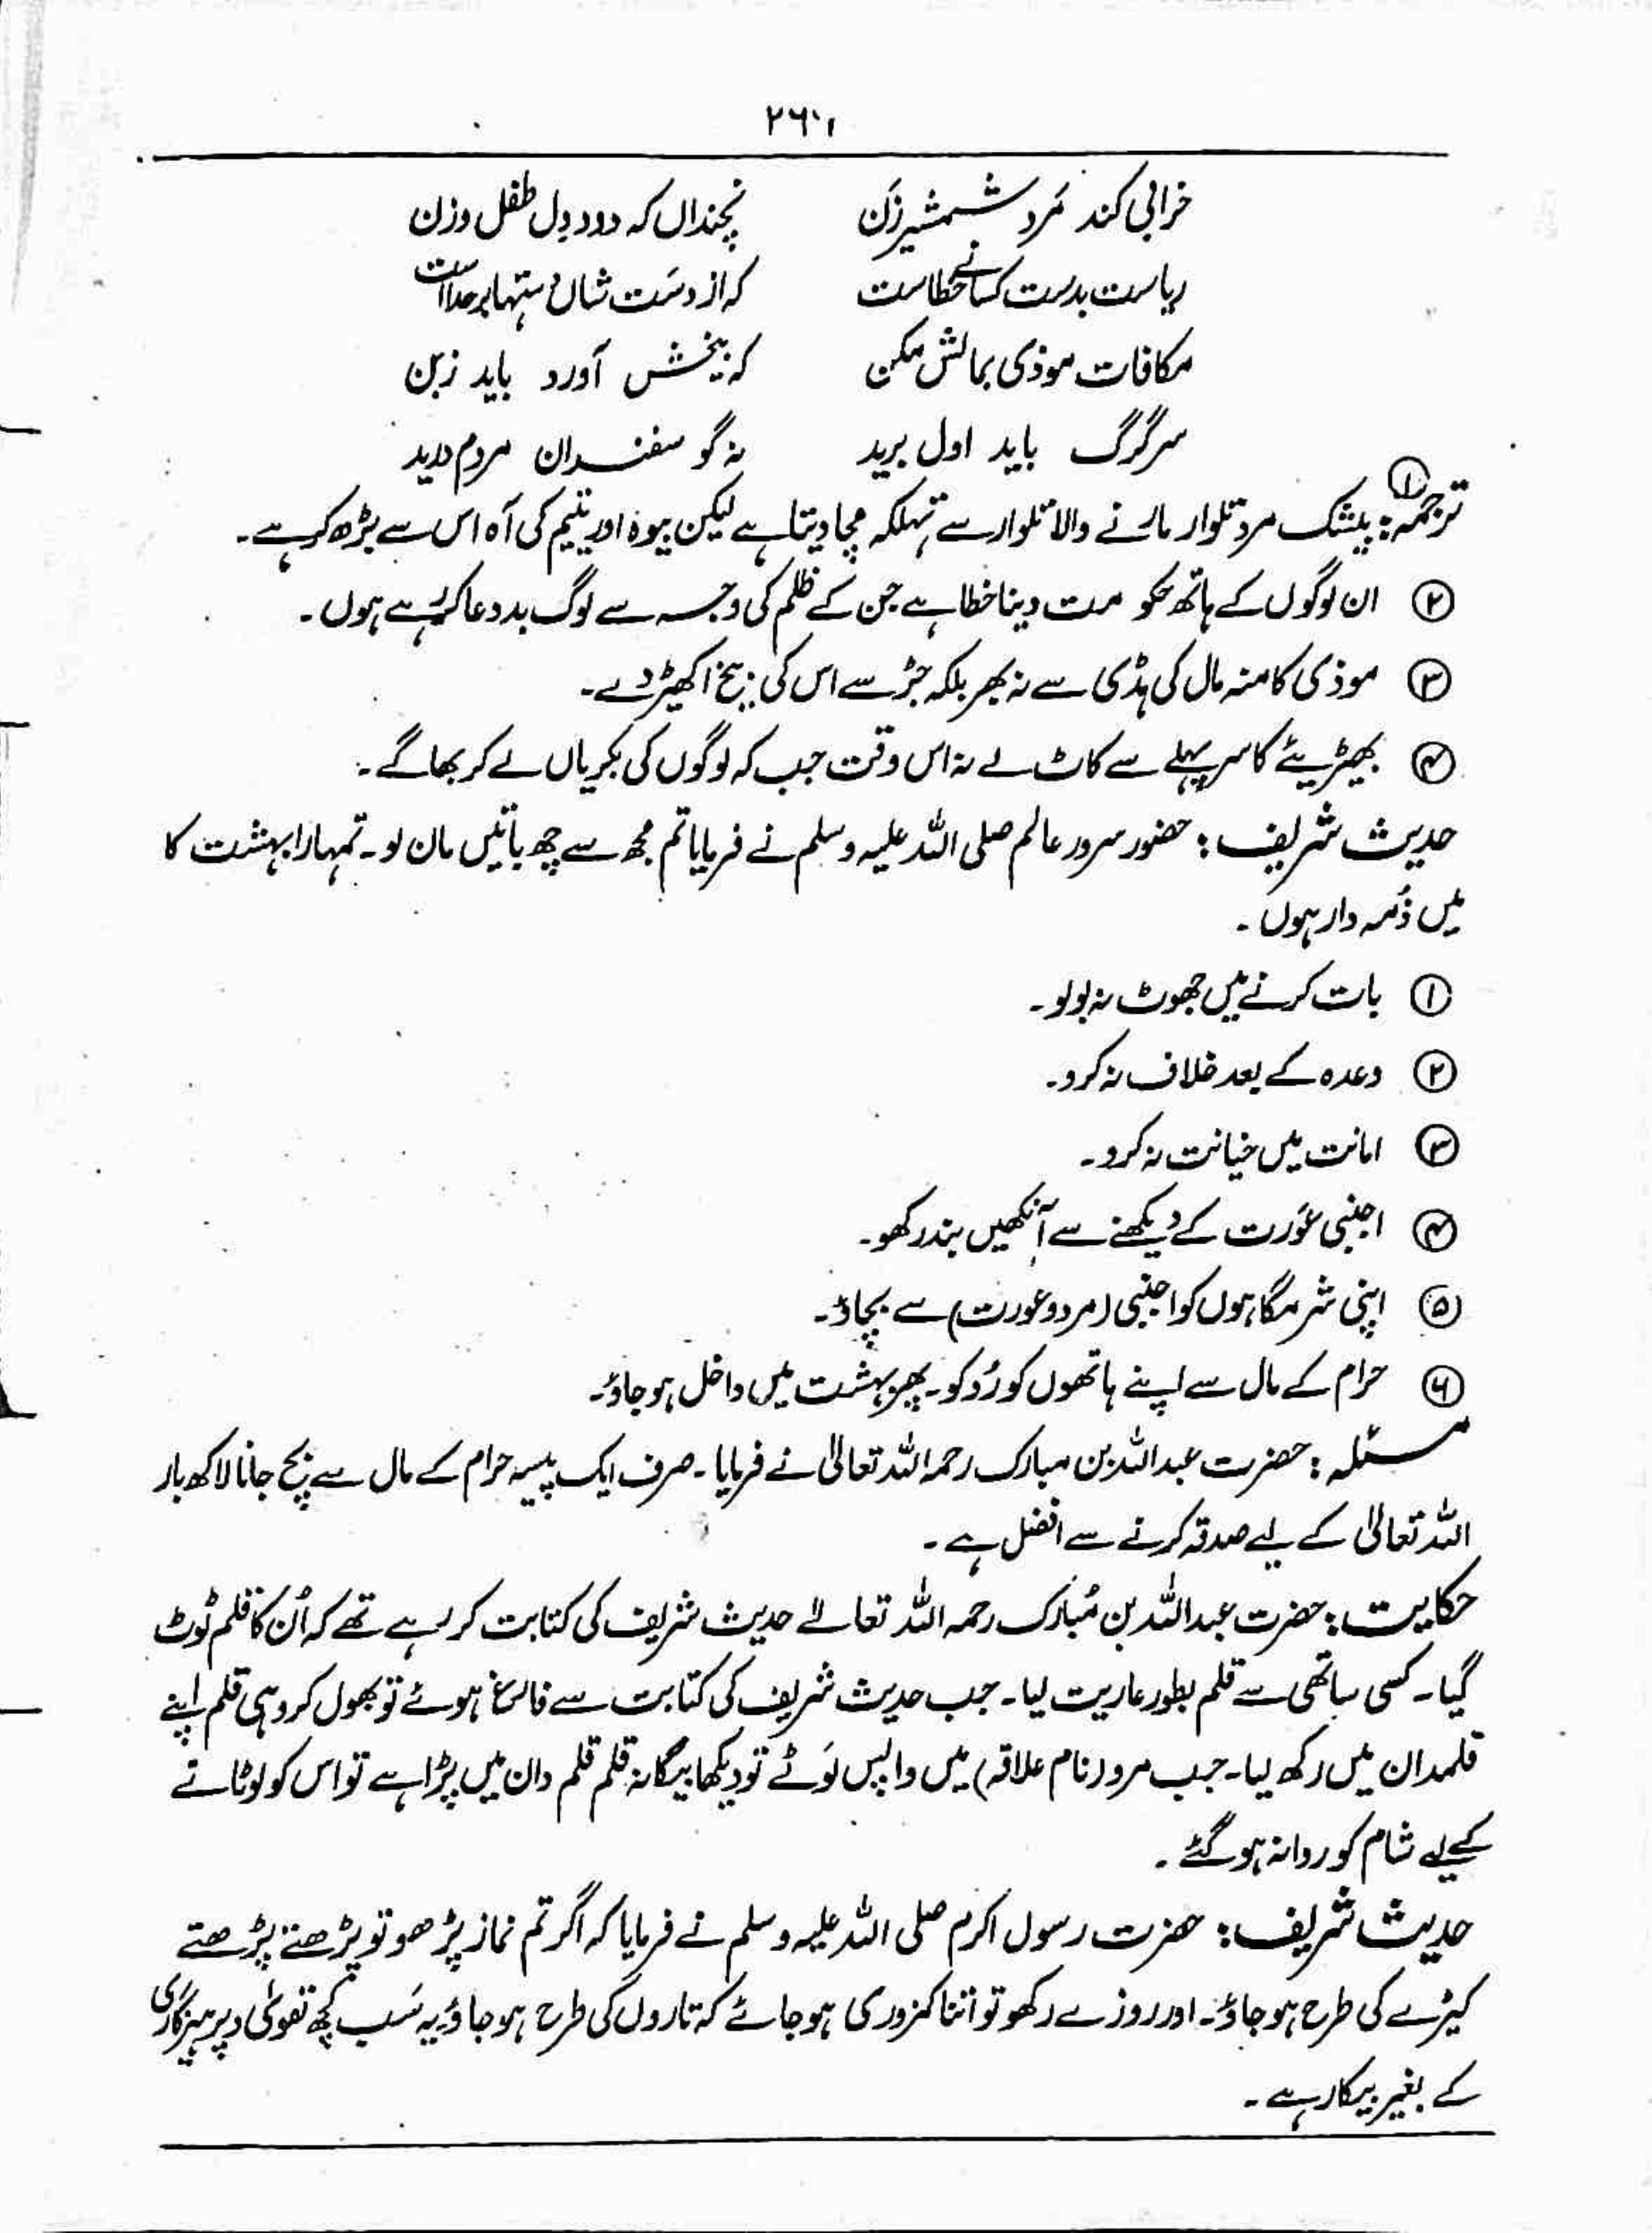 خرابی کند مرد شمشیر زن نچنداں کہ دود دل طفل و زن
ریاست بدست کسانے خطاست کہ از دست شاں دستہا بر خداست
مکافات موذی بمالش مکن کہ بیخش آورد باید زبن
سر گرگ باید اول برید نہ گو سفندان مردم درید
ترجمہ: ① بیشک مرد تلوار مارنے والا تلوار سے تہلکہ مچا دیتا ہے لیکن بیوہ اور یتیم کی آہ اس سے بڑھ کر ہے۔
② ان لوگوں کے ہاتھ حکو مت دینا خطا ہے جن کے ظلم کی وجہ سے لوگ بددعا کر رہے ہوں۔
③ موذی کا منہ مال کی ہڈی سے نہ بھر بلکہ جڑ سے اس کی بیخ اکھیڑ دے۔
④ بھیڑیئے کا سر پہلے سے کاٹ لے نہ اس وقت جب کہ لوگوں کی بکریاں لے کر بھاگے۔
حدیث شریف: حضور سرور عالم صلی اللہ علیہ وسلم نے فرمایا تم مجھ سے چھ باتیں مان لو۔ تمہارا بہشت کا
میں ذمہ دار ہوں۔
① بات کرنے میں جھوٹ نہ بولو۔
② وعدہ کے بعد خلاف نہ کرو۔
③ امانت میں خیانت نہ کرو۔
④ اجنبی عورت کے دیکھنے سے آنکھیں بند رکھو۔
⑤ اپنی شرمگاہوں کو اجنبی (مرد و عورت) سے بچاؤ۔
⑥ حرام کے مال سے اپنے ہاتھوں کو روکو۔ پھر بہشت میں داخل ہو جاؤ۔
مسئلہ: حضرت عبداللہ بن مبارک رحمہ اللہ تعالیٰ نے فرمایا۔ صرف ایک پیسہ حرام کے مال سے بچ جانا لاکھ بار
اللہ تعالیٰ کے لیے صدقہ کرنے سے افضل ہے۔
حکایت: حضرت عبداللہ بن مُبارک رحمہ اللہ تعالےٰ حدیث شریف کی کتابت کر رہے تھے کہ اُن کا قلم ٹوٹ
گیا۔ کسی ساتھی سے قلم بطور عاریت لیا۔ جب حدیث شریف کی کتابت سے فارغ ہوئے تو بھول کر وہی قلم اپنے
قلمدان میں رکھ لیا۔ جب مرو (نام علاقہ) میں واپس لَوٹے تو دیکھا بیگانہ قلم قلم دان میں پڑا ہے تو اس کو لوٹانے
کے لیے شام کو روانہ ہو گئے۔
حدیث شریف: حضرت رسول اکرم صلی اللہ علیہ وسلم نے فرمایا کہ اگر تم نماز پڑھو تو پڑھتے پڑھتے
کیڑے کی طرح ہو جاؤ۔ اور روزے رکھو تو اتنا کمزوری ہو جائے کہ تاروں کی طرح ہو جاؤ یہ سَب کچھ تقویٰ و پرہیزگاری
کے بغیر بیکار ہے۔